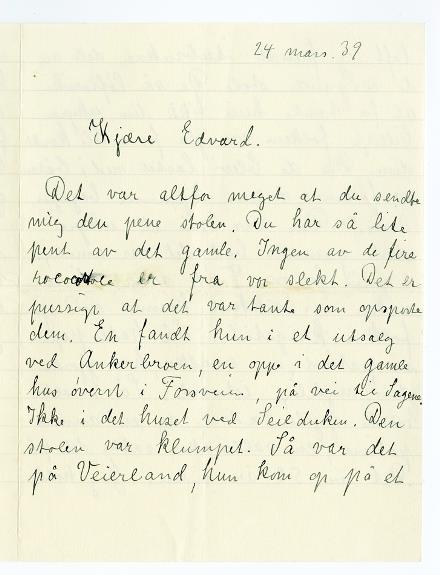 24 mars. 39
Kjære Edvard.
Det var altfor meget at du sendte
mig den pene stolen. Du har så lite
pent av det gamle. Ingen av de fire
er fra vor slekt. Det er
pussigt at det var tante som opsporte
dem. En fandt hun i et utsalg
ved Ankerbroen, en oppe i det gamle
hus øverst i , på vei til Sagene.
Ikke i det huset ved Seilduken. Den
stolen var klumpet. Så var det
på Veierland, hun kom op på et